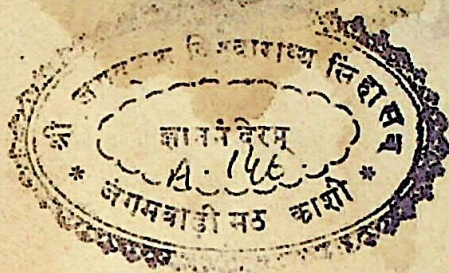 श्री जगद्गुरु विश्वाराध्य सिंहासन
ज्ञानमंदिरम्
A. 146.
* जंगमवाड़ी मठ काशी *